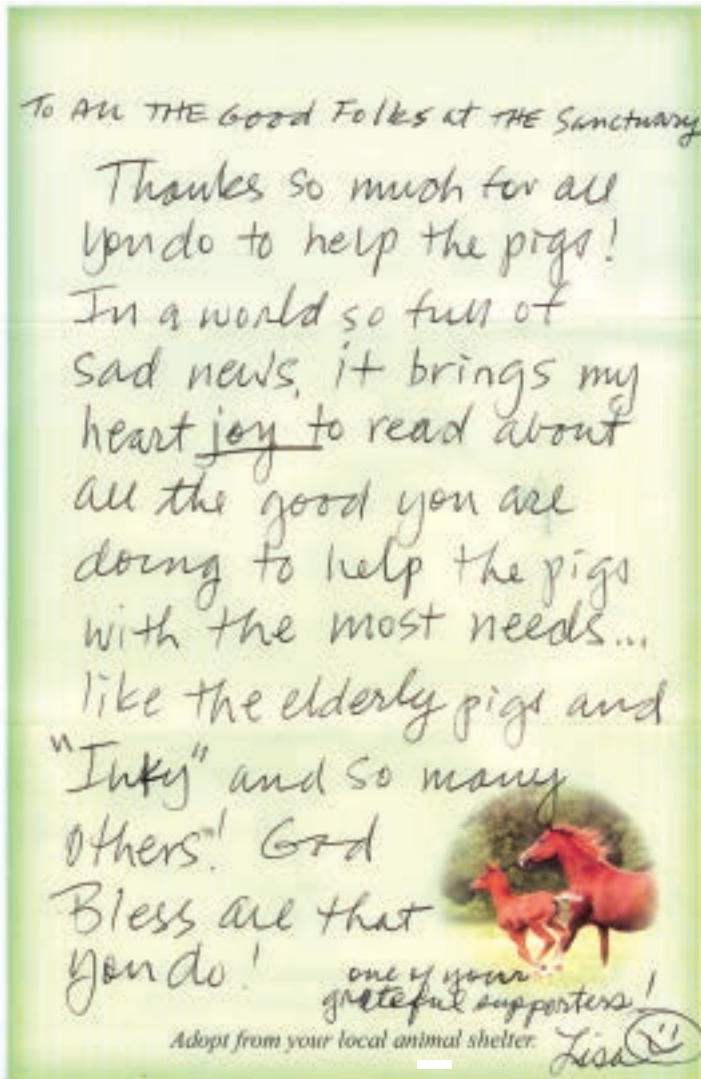 To All THE Good Folks at THE Sanctuary
Thanks so much for all
you do to help the pigs!
In a world so full of
sad news, it brings my
heart joy to read about
all the good you are
doing to help the pigs
with the most needs...
like the elderly pigs and
"Inky" and so many
others! God
Bless all that
you do!
one of your
grateful supporters!
Adopt from your local animal shelter.
Lisa